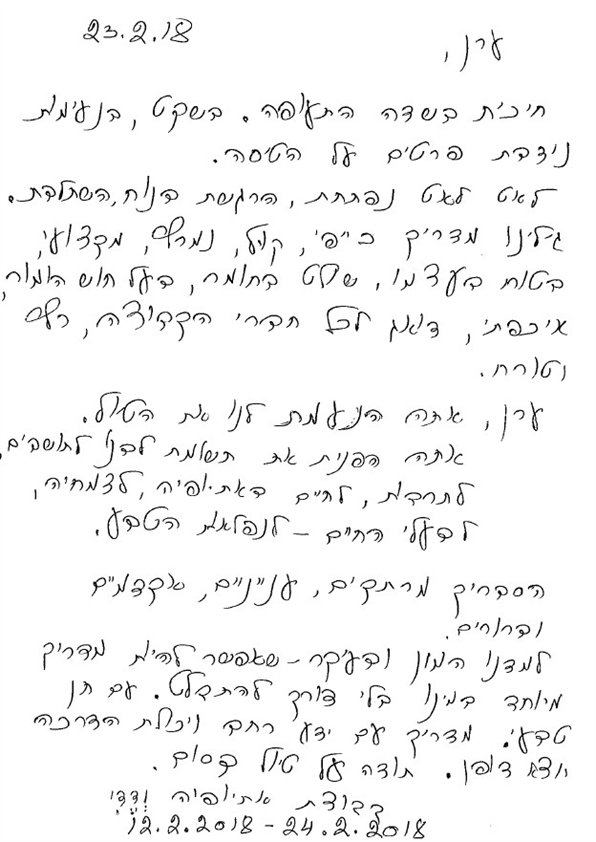 23.2.18
ערן,
חיכית בשדה התעופה. בשקט, בנעימות
נידבת פרטים על הטיסה.
לאט לאט נפתחת, הרגשת בנוח, השתלבת.
גילינו מדריך כייפי, קליל, נמרץ, מקצועי,
בטוח בעצמו, שולט בחומר, בעל חוש הומור,
איכפתי, דואג לכל חברי הקבוצה, רץ
וטורח.
ערן, אתה הנעמת לנו את הטיול.
אתה הפנית את תשומת לבנו לתושבים,
לתרבות, לחיים באתיופיה, לצמחיה,
לבעלי החיים – לנפלאות הטבע.
הסבריך מרתקים, ענייניים, אקדמיים
וברורים.
למדנו המון ובעיקר – שאפשר להיות מדריך
מיוחד במינו בלי צורך להתבלט. עם חן
טבעי. מדריך עם ידע רחב ויכולת הדרכה
יוצאת דופן. תודה על טיול קסום.
קבוצת אתיופיה
12.2.2018 - 24.2.2018